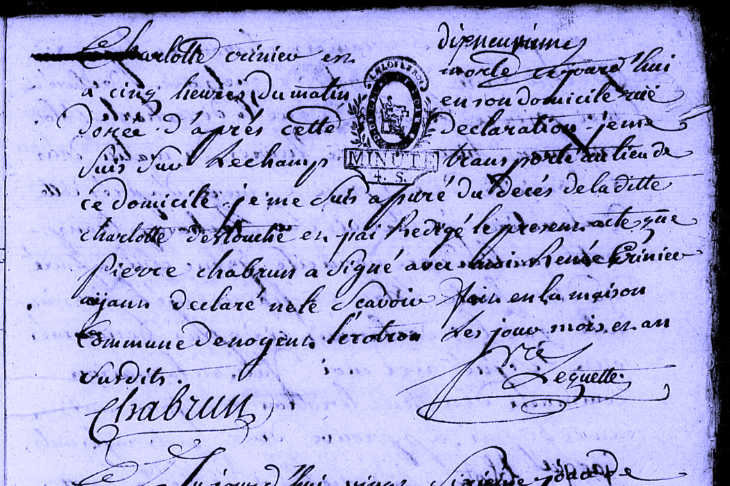 Charlotte crinier en
morte cejourd'hui
à cinq heures du matin en son domicile rue
dorée. d'après cette declaration, je me
suis sur Lechamp transporté au lieu de
ce domicile. je me suis apuré du decés de laditte
charlotte destouche en jai Redigé le present acte que
pierre chabrun a signé avec moi Renée Crinier
ayant declaré ne le Scavoir fait en la maison
Commune de nogent lerotrou Les jour mois et an
susdits.
MINUTE
4. S.
Chabrun
Lequette